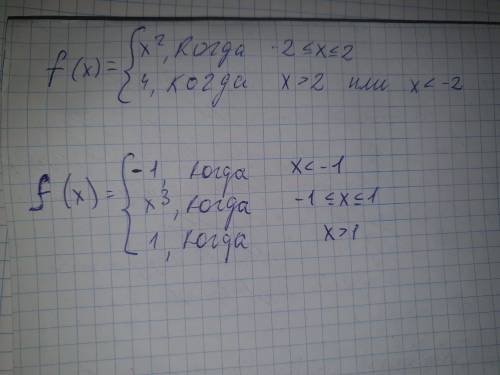 f(x) = { x², когда -2 ≤ x ≤ 2
4, когда x > 2 или x < -2
f(x) = { -1, когда x < -1
x³, когда -1 ≤ x ≤ 1
1, когда x > 1